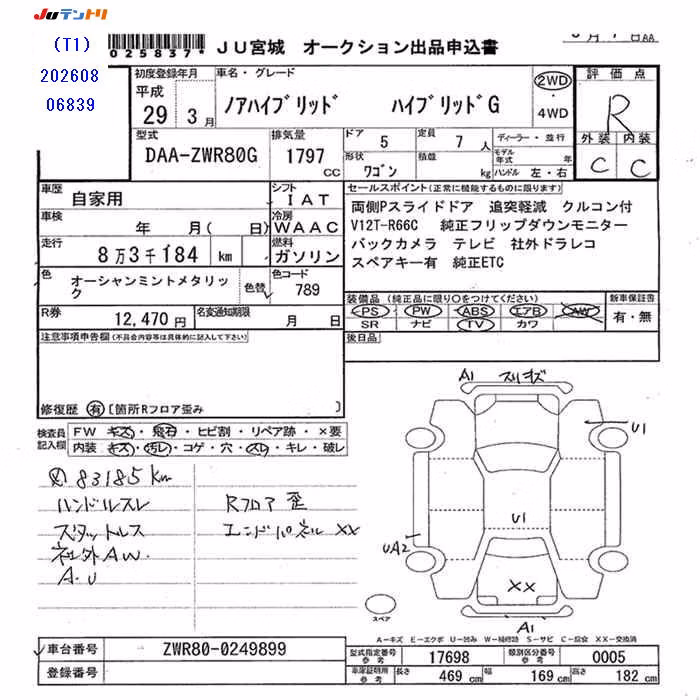 JUテントリ
(T1)
202608
06839
*025837*
JU宮城 オークション出品申込書
初度登録年月
平成
29年3月
車名・グレード
ノアハイブリッド ハイブリッドG
2WD
・
4WD
評価点
R
外装 内装
C C
型式
DAA-ZWR80G
排気量
1797
CC
ドア
5
定員
7人
形状
ワゴン
積載
kg
ディーラー・並行
モデル年式 年
ハンドル 左・右
車歴
自家用
シフト
IAT
車検
年 月( 日)
冷房
WAAC
走行
8万3千184 km
燃料
ガソリン
色
オーシャンミントメタリック
色替
色コード
789
R券
12,470円
名変通知期限
月 日
セールスポイント(正常に機能するものに限ります)
両側Pスライドドア 追突軽減 クルコン付
V12T-R66C 純正フリップダウンモニター
バックカメラ テレビ 社外ドラレコ
スペアキー有 純正ETC
装備品(純正品に限り○をつけてください)
PS PW ABS エアB AW
SR ナビ TV カワ
新車保証書
有・無
後日品
注意事項申告欄(不具合内容等は具体的に記入して下さい)
修復歴 有 [箇所Rフロア歪み ]
検査員記入欄
FW キズ・飛石・ヒビ割・リペア跡・×要
内装 キズ・汚レ・コゲ・穴・スレ・キレ・破レ
83185km
ハンドルスレ
スタットレス
社外AW.
A.U
Rフロア歪
エンドパネルXX
A1 スリキズ
U1
U1
UA2
XX
A1
スペア
A-キズ E-エクボ U-凹み W-補修跡 S-サビ C-腐食 XX-交換済
車台番号
ZWR80-0249899
登録番号
型式指定番号
参考
17698
類別区分番号
参考
0005
車庫証明用
参考
長さ
469 cm
幅
169 cm
高さ
182 cm